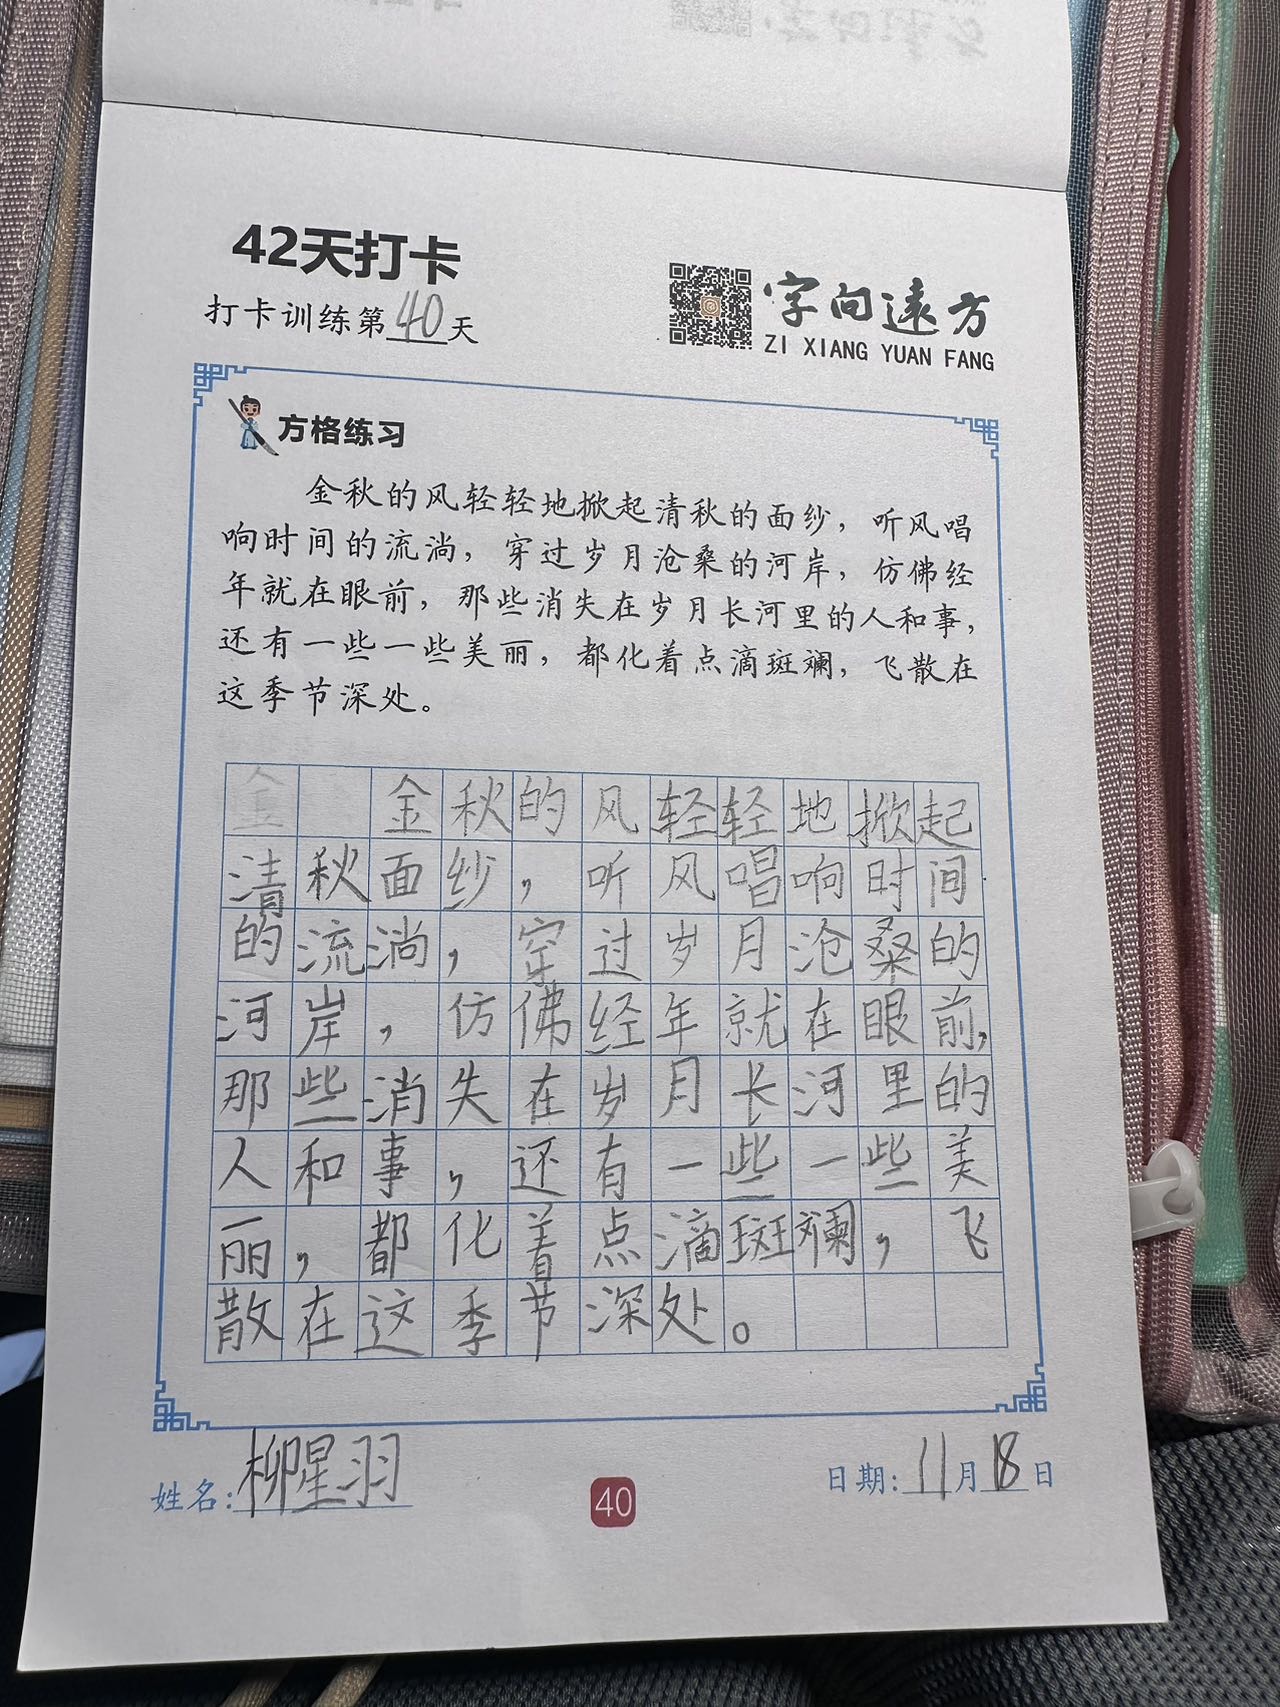 42天打卡
打卡训练第40天
字向遠方
ZI XIANG YUAN FANG
方格练习
金秋的风轻轻地掀起清秋的面纱，听风唱
响时间的流淌，穿过岁月沧桑的河岸，仿佛经
年就在眼前，那些消失在岁月长河里的人和事，
还有一些一些美丽，都化着点滴斑斓，飞散在
这季节深处。
金 金秋的风轻轻地掀起
清秋面纱，听风唱响时间
的流淌，穿过岁月沧桑的
河岸，仿佛经年就在眼前，
那些消失在岁月长河里的
人和事，还有一些一些美
丽，都化着点滴斑斓，飞
散在这季节深处。
姓名:柳星羽
40
日期:11月18日